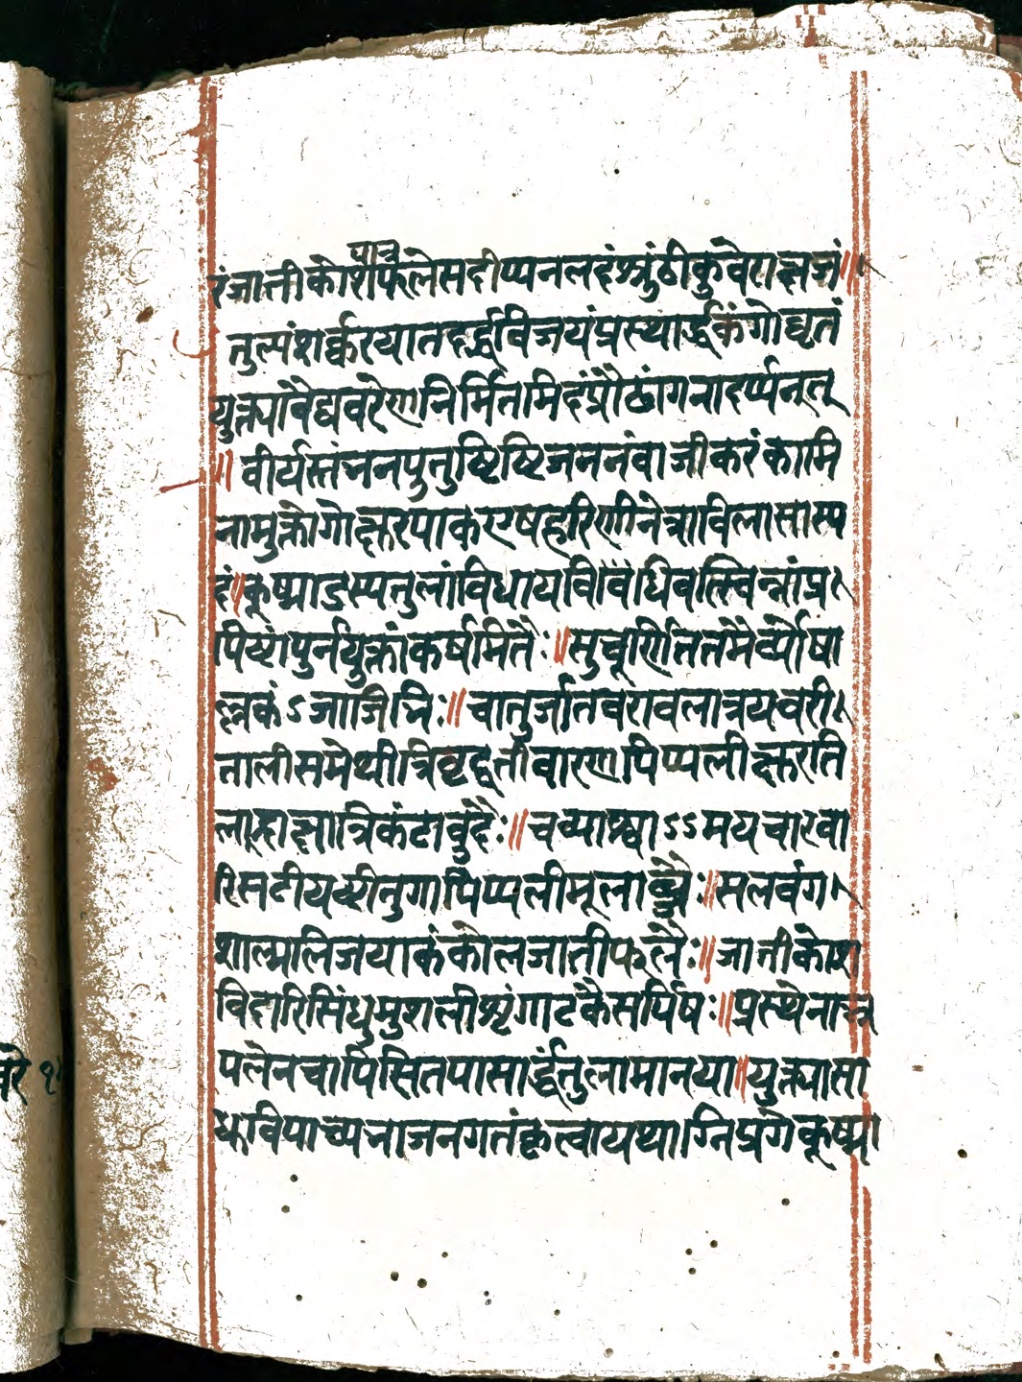 पात्र
रंजातीकोशफलेसदीप्यनलदंश्रुंठीकुवेराक्षजं॥
तुल्पंशर्क्करयातदर्द्धविजयंप्रस्थार्द्धकंगोघृतं
युक्त्यांवैद्यवरेणनिर्मितमिदंप्रौठांगनादर्प्पनुत्
॥वीर्यस्तंभनपुतुष्टिष्टिजननंवाजीकरंकामि
नामुक्तोगोक्षुरपाकएषहरिणीनेत्राविलासास्प
दं॥कूष्माडस्पतुलांविधायविविधिवत्स्विन्नांप्र
पिष्टांपुर्नयुक्तांकर्षमितैः॥सुचूर्णिततमैर्व्योषा
ल्लकंऽजाजिभिः॥चातुर्जातवरावलात्रयवरी
तालीसमेथीत्रिवृद्दंतीवारणपिप्पलीक्षुरति
लाद्राक्षात्रिकंटावुदैः॥चव्याश्वाऽऽमयचारवा
रिसटीयष्टीतुगापिप्पलीमूला॥सलवंग
शाल्मलिजयाकंकोलजातीफलैः॥जातीकोश
विदारिसिंधुमुशलीशृंगाटकैसर्पिषः॥प्रस्थेनात्र
पलेनचार्पिसितपासार्द्धंतुलामानया॥युक्त्यासा
धुविपाच्यभाजनगतंकृत्वायथाग्निप्रगेकूष्मा
वरे १